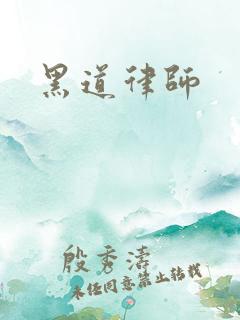 黑道律師
殷秀濤
未任同意禁止转载